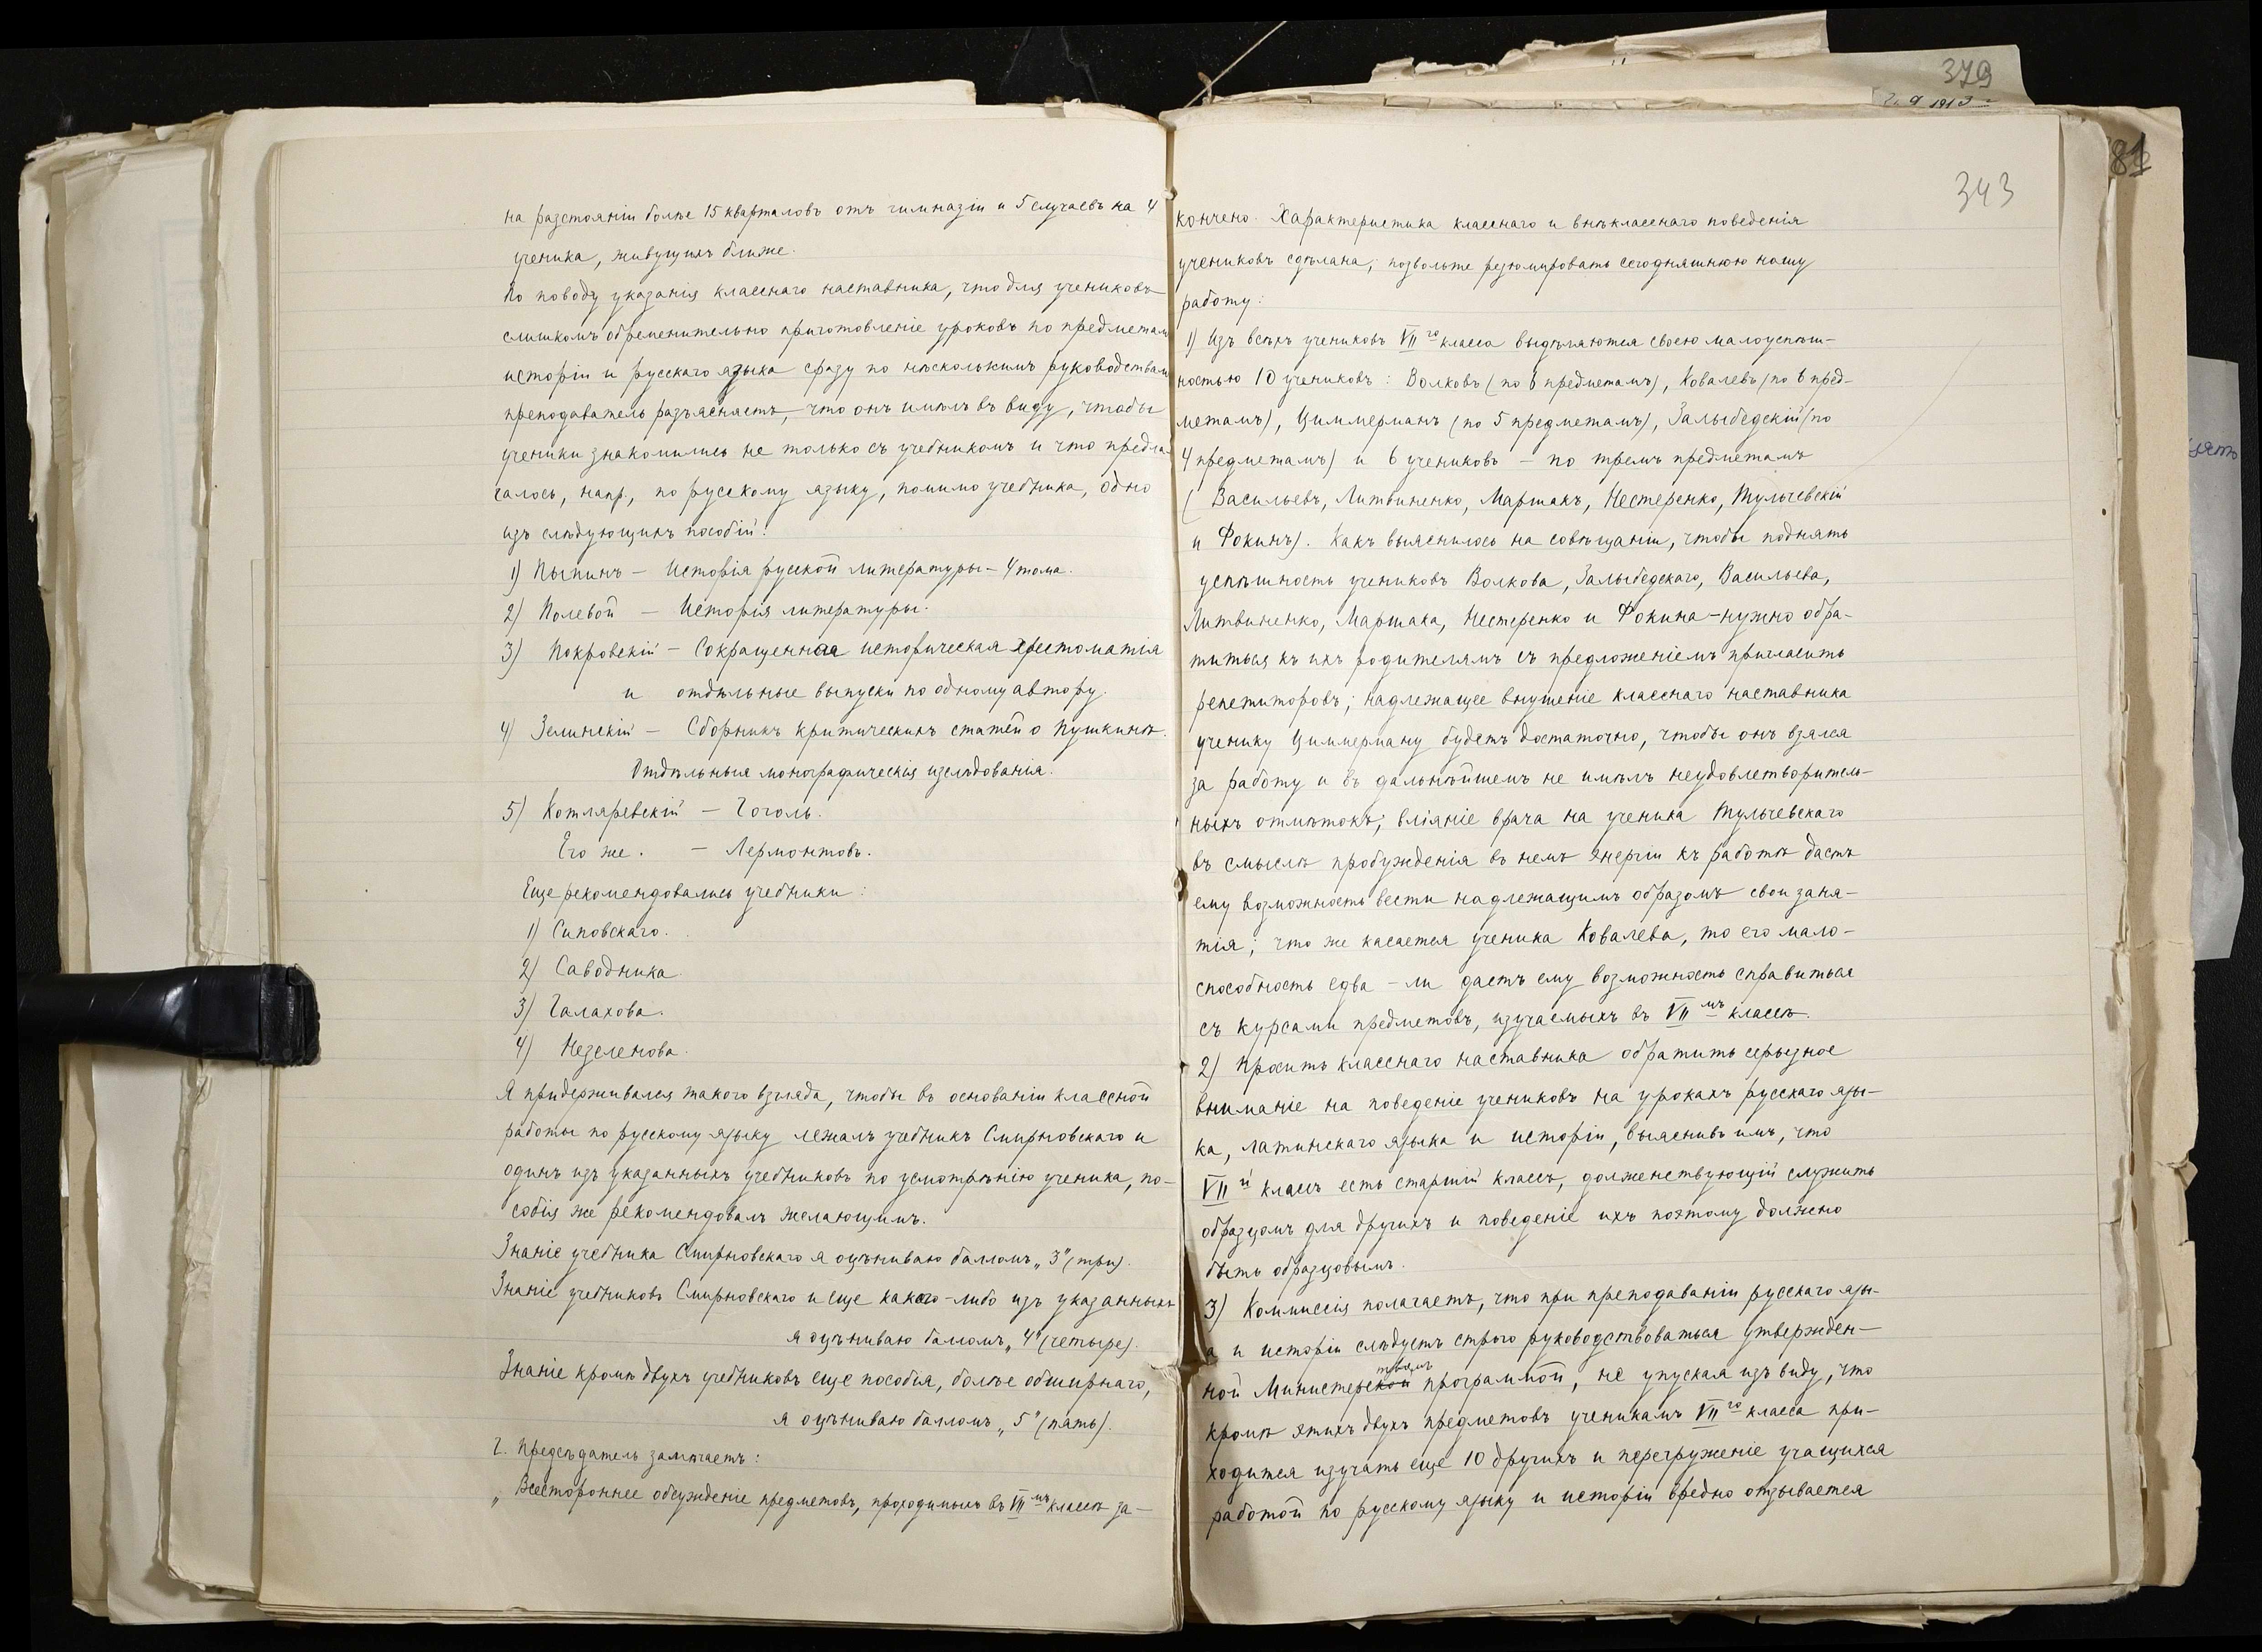 на разстояніи болѣе 15 кварталовъ отъ гимназіи и 5 случаевъ на 4
ученика, живущихъ ближе.
По поводу указанія класснаго наставника, что для учениковъ
слишкомъ обременительно приготовленіе уроковъ по предметамъ
исторіи и русскаго языка сразу по нѣсколькимъ руководствамъ
преподаватель разъясняетъ, что онъ имѣлъ въ виду, чтобы
ученики знакомились не только съ учебникомъ и что предла-
галось, напр., по русскому языку, помимо учебника, одно
изъ слѣдующихъ пособій:
1) Пыпинъ – Исторія русской литературы – 4 тома.
2) Полевой – Исторія литературы.
3) Покровскій – Сокращенная историческая хрестоматія
и отдѣльные выпуски по одному автору.
4) Зелинскій – Сборникъ критическихъ статей о Пушкинѣ.
Отдѣльныя монографическія изслѣдованія.
5) Котляревскій – Гоголь.
Его же. – Лермонтовъ.
Еще рекомендовались учебники:
1) Сиповскаго.
2) Саводника.
3) Галахова.
4) Незеленова.
Я придерживался такого взгляда, чтобы въ основаніи классной
работы по русскому языку лежалъ учебникъ Смирновскаго и
одинъ изъ указанныхъ учебниковъ по усмотрѣнію ученика, по-
собія же рекомендовалъ желающимъ.
Знаніе учебника Смирновскаго я оцѣниваю балломъ „3" (три).
Знаніе учебниковъ Смирновскаго и еще какого-либо изъ указанныхъ
я оцѣниваю балломъ „4" (четыре).
Знаніе кромѣ двухъ учебниковъ еще пособія, болѣе обширнаго,
я оцѣниваю балломъ „5" (пять).
Г. Предсѣдатель замѣчаетъ:
„Всестороннее обсужденіе предметовъ, проходимыхъ въ VII мъ классѣ за-
379
81
343
кончено. Характеристика класснаго и внѣкласснаго поведенія
учениковъ сдѣлана; позвольте резюмировать сегодняшнюю нашу
работу:
1) Изъ всѣхъ учениковъ VII го класса выдѣляются своею малоуспѣш-
ностью 10 учениковъ: Волковъ (по 6 предметамъ), Ковалевъ (по 6 пред-
метамъ), Циммерманъ (по 5 предметамъ), Залыбедскій (по
4 предметамъ) и 6 учениковъ – по тремъ предметамъ
(Васильевъ, Литвиненко, Маршакъ, Нестеренко, Тульчевскій
и Фокинъ). Какъ выяснилось на совѣщаніи, чтобы поднять
успѣшность учениковъ Волкова, Залыбедскаго, Васильева,
Литвиненко, Маршака, Нестеренко и Фокина – нужно обра-
титься къ ихъ родителямъ съ предложеніемъ пригласить
репетиторовъ; надлежащее внушеніе класснаго наставника
ученику Циммерману будетъ достаточно, чтобы онъ взялся
за работу и въ дальнѣйшемъ не имѣлъ неудовлетворитель-
ныхъ отмѣтокъ; вліяніе врача на ученика Тульчевскаго
въ смыслѣ пробужденія въ немъ энергіи къ работѣ дастъ
ему возможность вести надлежащимъ образомъ свои заня-
тія; что же касается ученика Ковалева, то его мало-
способность едва-ли дастъ ему возможность справиться
съ курсами предметовъ, изучаемыхъ въ VII мъ классѣ.
2) Просить класснаго наставника обратить серьезное
вниманіе на поведеніе учениковъ на урокахъ русскаго язы-
ка, латинскаго языка и исторіи, выяснивъ имъ, что
VII й классъ есть старшій классъ, долженствующій служить
образцомъ для другихъ и поведеніе ихъ поэтому должно
быть образцовымъ.
3) Коммиссія полагаетъ, что при преподаваніи русскаго язы-
а и исторіи слѣдуетъ строго руководствоваться утвержден-
твомъ
ной Министерской программой, не упуская изъ виду, что
кромѣ этихъ двухъ предметовъ ученикамъ VII го класса при-
ходится изучать еще 10 другихъ и перегруженіе учащихся
работой по русскому языку и исторіи вредно отзывается